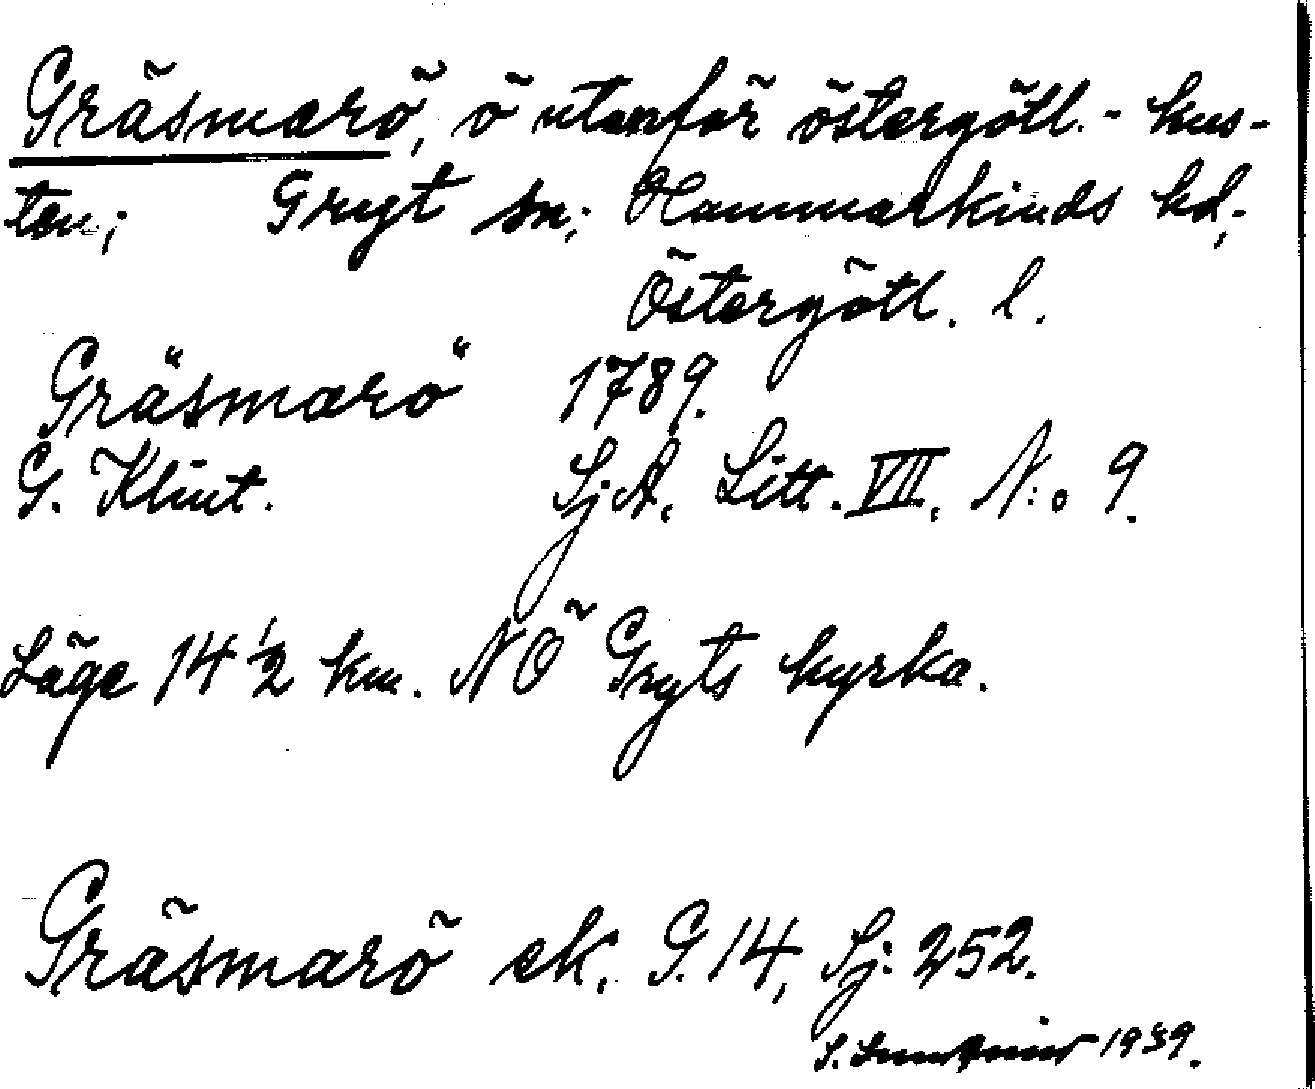 Gräsmarö, ö utanför östergötl.-kus-
ten; Gryt sn; Hammarkinds hd,
Östergötl. l.
Gräsmarö 1789.
G. Klint. SjA. Litt. VII. N:o 9.
Läge 14 1/2 km. NÖ Gryts kyrka.
Gräsmarö ek. G. 14, Sj: 252.
S. 1939.